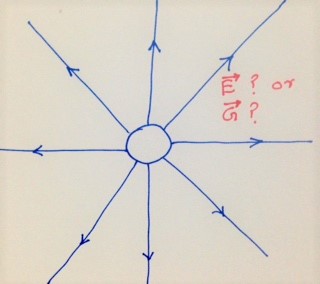 E⃗ ? or
G⃗ ?